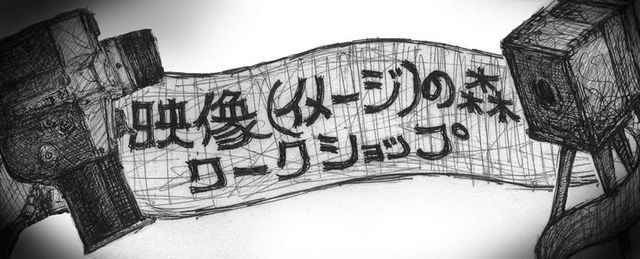 映像(イメージ)の森
ワークショップ